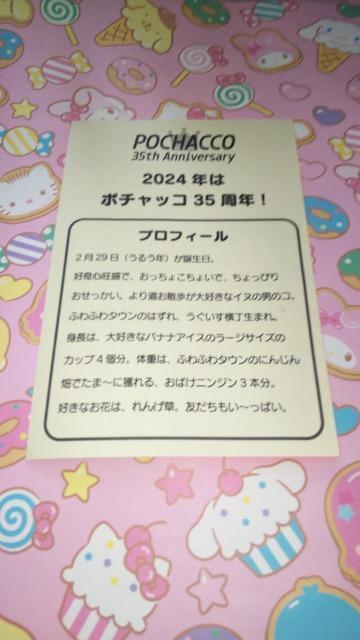 POCHACCO
35th Anniversary
2024年は
ポチャッコ35周年！
プロフィール
2月29日（うるう年）が誕生日。
好奇心旺盛で、おっちょこちょいで、ちょっぴり
おせっかい。より道お散歩が大好きなイヌの男のコ。
ふわふわタウンのはずれ、うぐいす横丁生まれ。
身長は、大好きなバナナアイスのラージサイズの
カップ4個分。体重は、ふわふわタウンのにんじん
畑でたま〜に獲れる、おばけニンジン3本分。
好きなお花は、れんげ草。友だちもい〜っぱい。